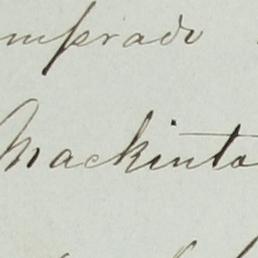 mprado
Mackinto